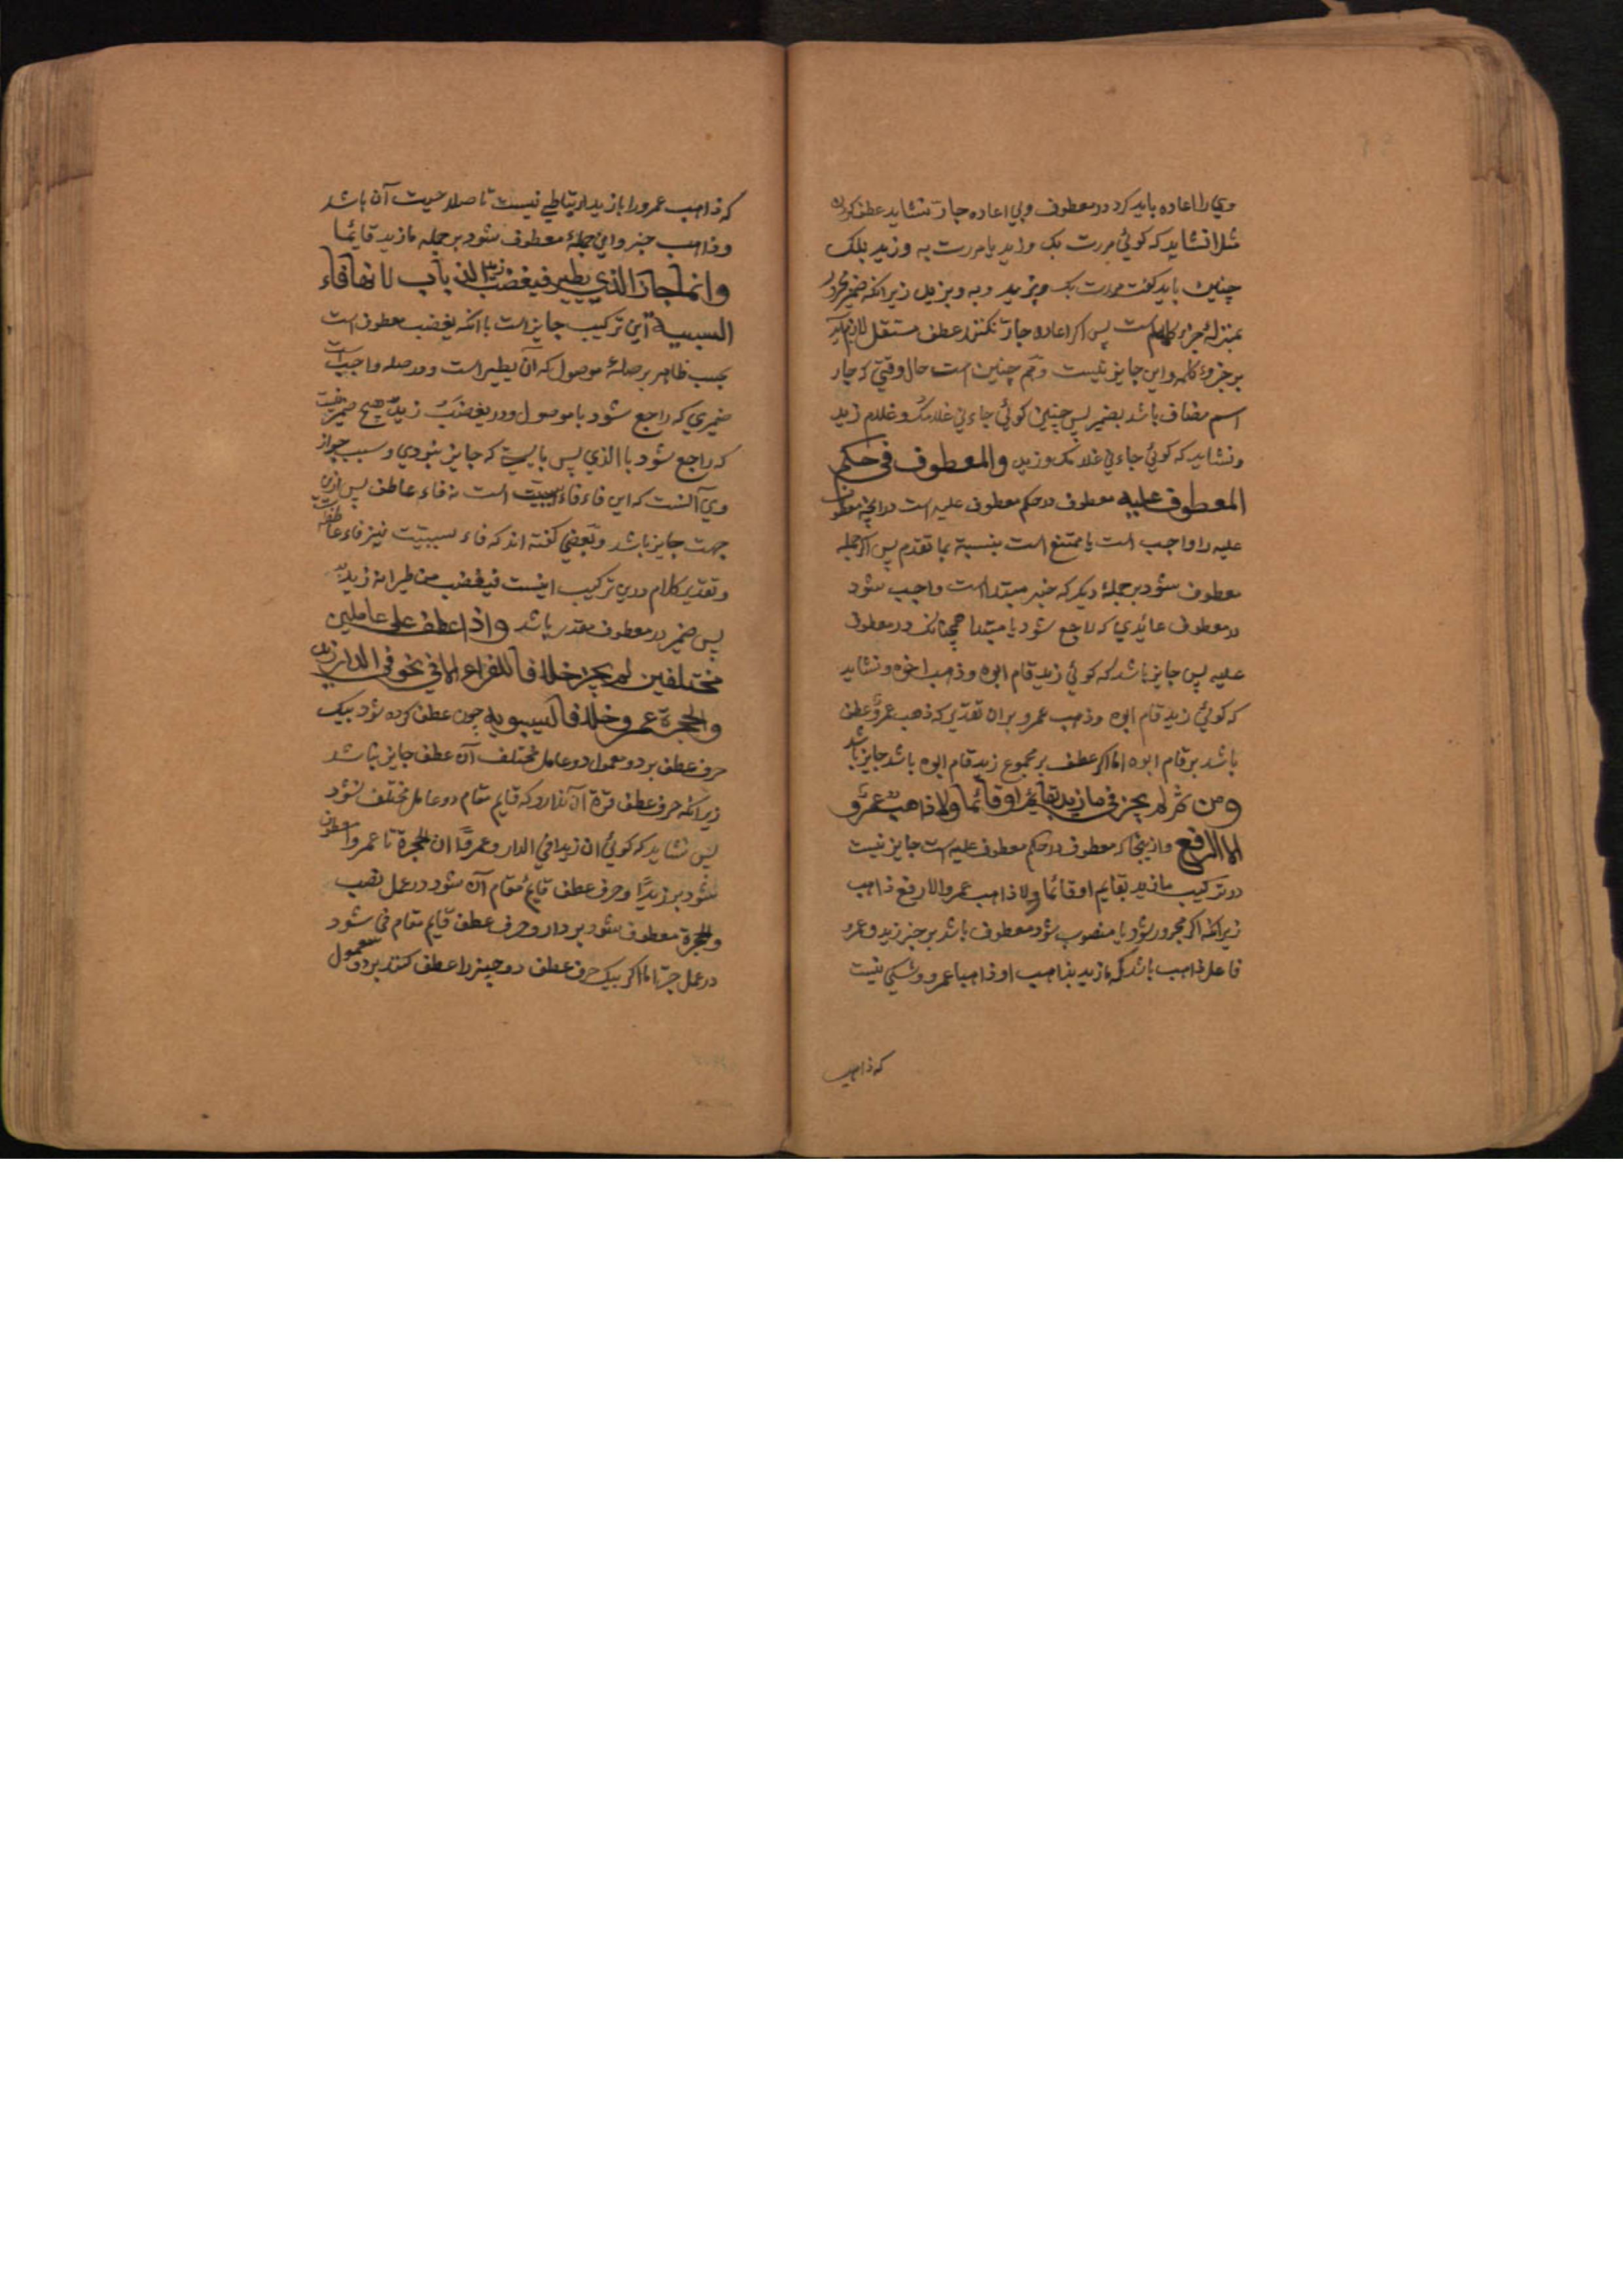 ویرا اعاده باید کرد در معطوف و بی اعاده جار نشاید عطف کردن
مثلا نشاید که کوئی مررت بک و زید یا مررت به و زید بلک
چنین باید کفت مررت بک وبزید و به وبزید زیرا نکه ضمیر مجرور
بمنزلهٔ جزء کلمه است پس اکر اعاده جار نکنند عطف مستقل لازم آید
بر جزوء کلمه و این جایز نیست و هم چنین است حال وقتی که جار
اسم مضاف باشد بضمیر پس چنین کوئی جاءنی غلامک وغلام زید
و نشاید که کوئی جاءنی غلامک وزید والمعطوف فی حکم
المعطوف علیه معطوف در حکم معطوف علیه است در انچه معطوف
علیه را واجب است یا ممتنع است بنسبة بما تقدم پس اکر جمله
معطوف شود بر جملهٔ دیکر که خبر مبتدا است واجب شود
در معطوف عائدی که راجع شود با مبتدا همچنانک در معطوف
علیه پس جایز باشد که کوئی زید قام ابوه وذهب اخوه و نشاید
که کوئی زید قام ابوه وذهب عمرو بران تقدیر که ذهب عمرو عطف
باشد بر قام ابوه اما اکر عطف بر مجموع زید قام ابوه باشد جایز باشد
ومن ثم لم یجز فی ما زید بقایم او قائما ولا ذاهب عمرو
الا الرفع و از ینجا که معطوف در حکم معطوف علیه است جایز نیست
در ترکیب ما زید بقایم او قائما ولا ذاهب عمرو الا رفع ذاهب
زیرا نکه اکر مجرور شود یا منصوب شود معطوف باشد بر خبر زید و عمرو
فاعل ذاهب باشد که ما زید بذاهب او ذاهبا عمرو و شکی نیست
که ذاهب
که ذاهب عمرو را با زید ارتباطی نیست تا صلاحیت آن باشد
وذاهب خبر و این جملهٔ معطوف شود بر جمله ما زید قائما
وانما جاز الذی یطیر فیغضب زید الذباب لانها فاء
السببیة این ترکیب جایز است با انکه یغضب معطوف است
بحسب ظاهر بر صلهٔ موصول که آن یطیر است و در صله واجب است
ضمیری که راجع شود با موصول و در یغضب زید هیچ ضمیر نیست
که راجع شود با الذی پس بایست که جایز نبودی و سبب جواز
وی آنست که این فاء فاء سببیت است نه فاء عاطف پس ازین
جهت جایز باشد و بعضی کفته اند که فاء سببیت نیز فاء عاطفه
و تقدیر کلام درین ترکیب اینست فیغضب من طیرانه زید
پس ضمیر در معطوف مقدر باشد واذا عطف علی عاملین
مختلفین لم یجز خلافا للفراء الا فی نحو فی الدار زید
والحجرة عمرو خلافا لسیبویه چون عطف کرده شود بیک
حرف عطف بر دو معمول دو عامل مختلف آن عطف جایز نباشد
زیرا نکه حرف عطف قوة آن ندارد که قایم مقام دو عامل مختلف شود
پس نشاید که کوئی ان زیدا فی الدار وعمروا الحجرة تا عمروا معطوف
شود بر زیدا وحرف عطف قایم مقام آن شود در عمل نصب
والحجرة معطوف شود بر دار و حرف عطف قایم مقام فی شود
در عمل جر اما اکر بیک حرف عطف دو چیز را عطف کنند بر دو معمول